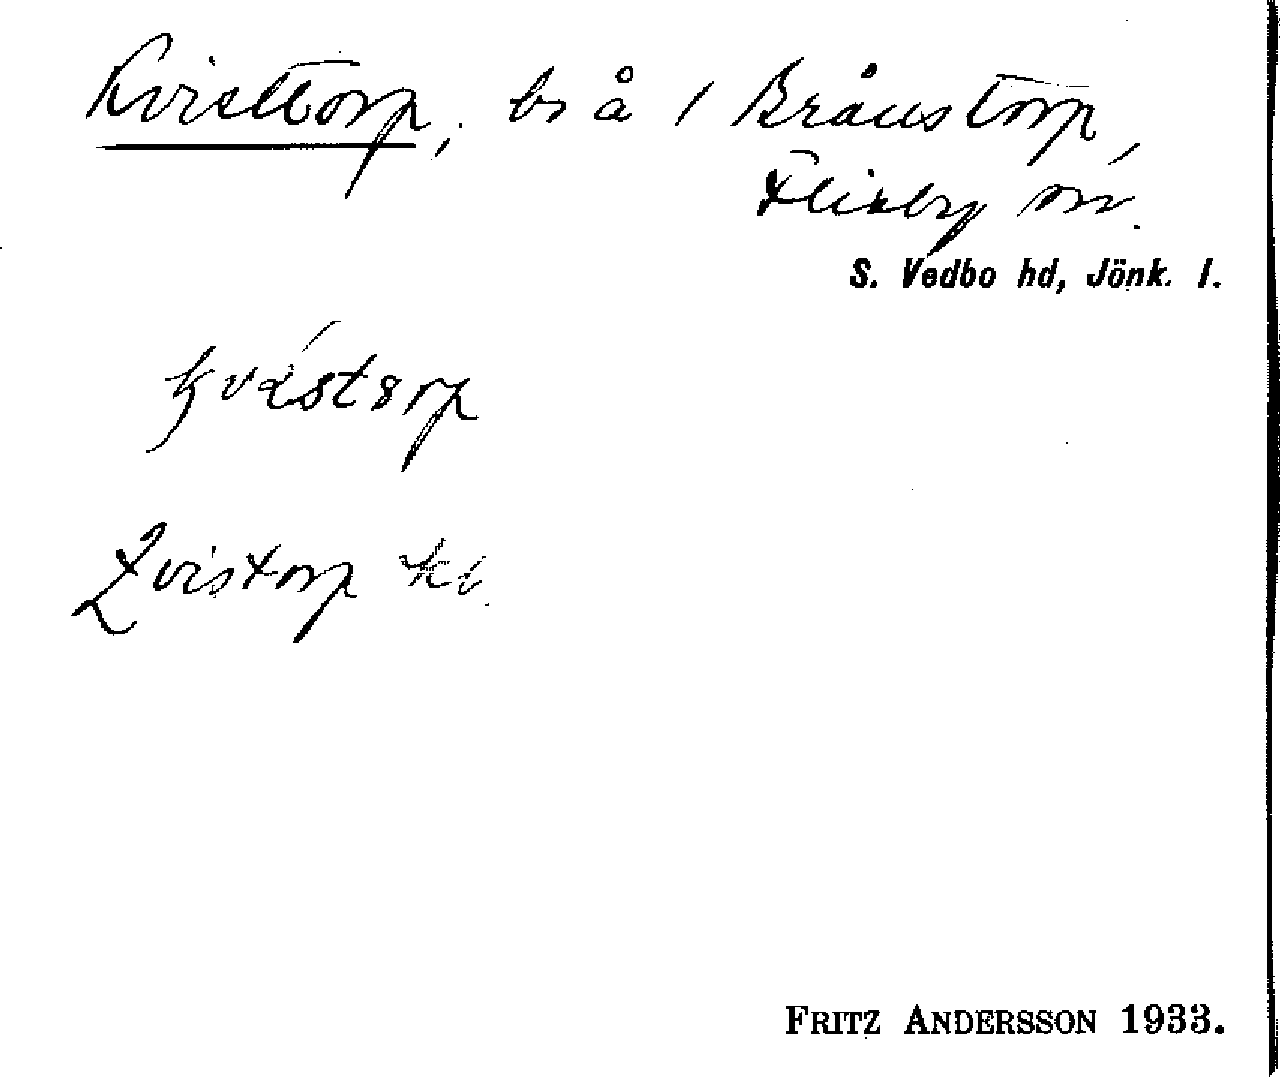 Kvisttorp, bs å 1 Brånstorp,
Flisby sn.
S. Vedbo hd, Jönk. l.
Qvistorp kb.
FRITZ ANDERSSON 1933.